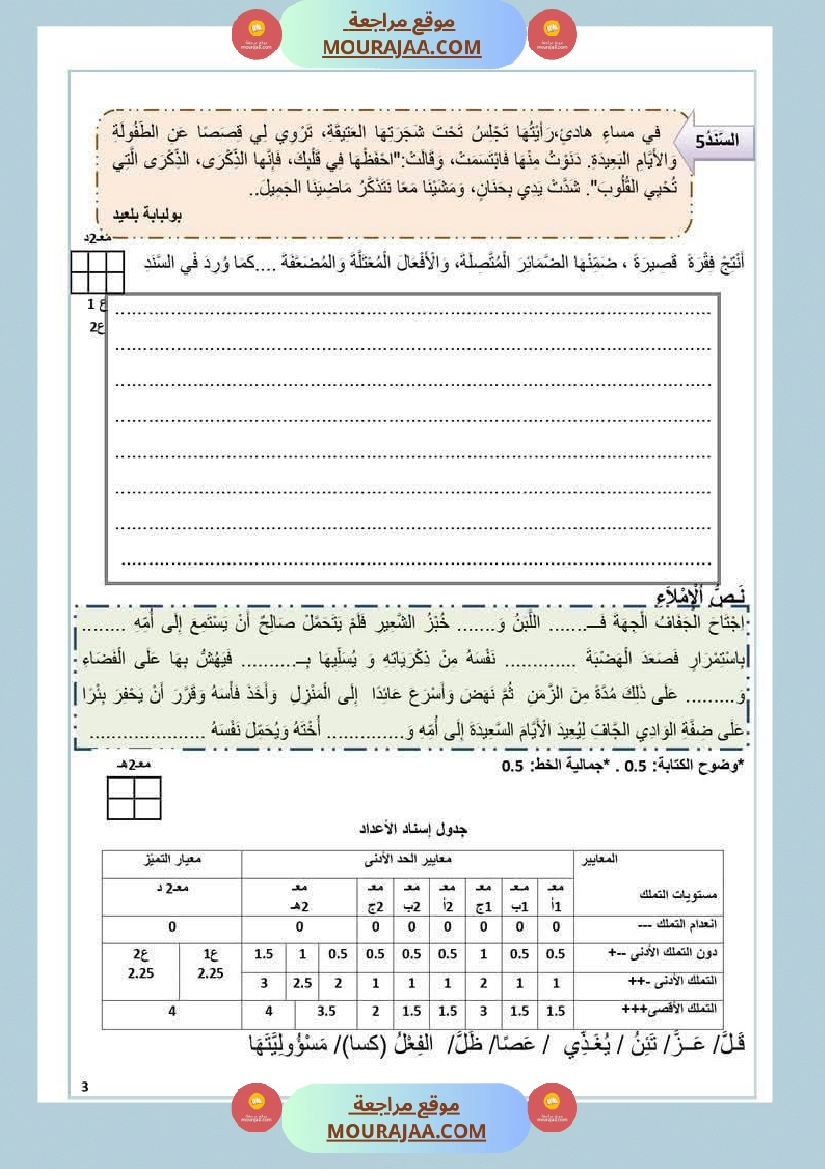 موقع مراجعة
MOURAJAA.COM
السَّنَدُ5
في مساءٍ هادئٍ،رَأَيْتُهَا تَجْلِسُ تَحْتَ شَجَرَتِها العَتِيقَةِ، تَرْوِي لي قِصَصًا عَنِ الطُّفُولَةِ
وَالأَيَّامِ البَعِيدَةِ. دَنَوْتُ مِنْهَا فَابْتَسَمَتْ، وَقَالَتْ:"احْفَظْهَا فِي قَلْبِكَ، فَإِنَّها الذِّكْرَى، الذِّكْرَى الَّتِي
تُحْيِي القُلُوبَ". شَدَّتْ يَدِي بِحَنَانٍ، وَمَشَيْنَا مَعًا نَتَذَكَّرُ مَاضِينَا الجَمِيلَ..
بولبابة بلعيد
معـ2د
أُنْتِجُ فِقْرَةً قَصِيرَةً ، ضَمِّنْهَا الضَّمَائِرَ الْمُتَّصِلَةَ، وَالْأَفْعَالَ الْمُعْتَلَّةَ وَالمُضَعَّفَةَ ....كَمَا وُرِدَ فِي السَّنَدْ
ع 1
ع2
نَـصُّ الْإِمْلَاءِ
اِجْتَاحَ الْجَفَافُ الْجِهَةَ فَـــ....... اللَّبَنُ وَ....... خُبْزُ الشَّعِيرِ فَلَمْ يَتَحَمَّلْ صَالِحٌ أَنْ يَسْتَمِعَ إِلَى أُمِّهِ ........
بِاسْتِمْرَارٍ فَصَعَدَ الْهَضْبَةَ ............. نَفْسَهُ مِنْ ذِكْرَيَاتِهِ وَ يُسَلِّيهَا بِــ.......... فَيَهُشُّ بِهَا عَلَى الْفَضَاءِ
وَ......... عَلَى ذَلِكَ مُدَّةً مِنَ الزَّمَنِ ثُمَّ نَهِضَ وَأَسْرَعَ عَائِدًا إِلَى الْمَنْزِلِ وَأَخَذَ فَأْسَهُ وَقَرَّرَ أَنْ يَحْفِرَ بِئْرًا
عَلَى ضِفَّةِ الوَادِي الجَّافِّ لِيُعِيدَ الْأَيَّامَ السَّعِيدَةَ إِلَى أُمِّهِ وَ............... أُخْتَهُ وَيُحَمِّلَ نَفْسَهُ ......................
*وضوح الكتابة: 0.5 . *جمالية الخط: 0.5
معـ2هـ
جدول إسناد الأعداد
المعايير معايير الحد الأدنى معيار التميّز
مستويات التملك معـ 1أ معـ 1ب معـ 1ج معـ 2أ معـ 2ب معـ 2ج معـ 2هـ معـ2 د
انعدام التملك --- 0 0 0 0 0 0 0 0
دون التملك الأدنى --+ 0.5 0.5 1 0.5 0.5 0.5 0.5 1 1.5 ع1 2.25 ع2 2.25
التملك الأدنى -++ 1 1 2 1 1 1 2 2.5 3
التملك الأقصى+++ 1.5 1.5 3 1.5 1.5 2 3.5 4 4
قَـلَّ/ عَــزَّ/ تَئِنُّ / يُغَذِّي / عَصًا/ ظَلَّ/ الفِعْلُ (كسا)/ مَسْؤُولِيَّتَهَا
3
موقع مراجعة
MOURAJAA.COM